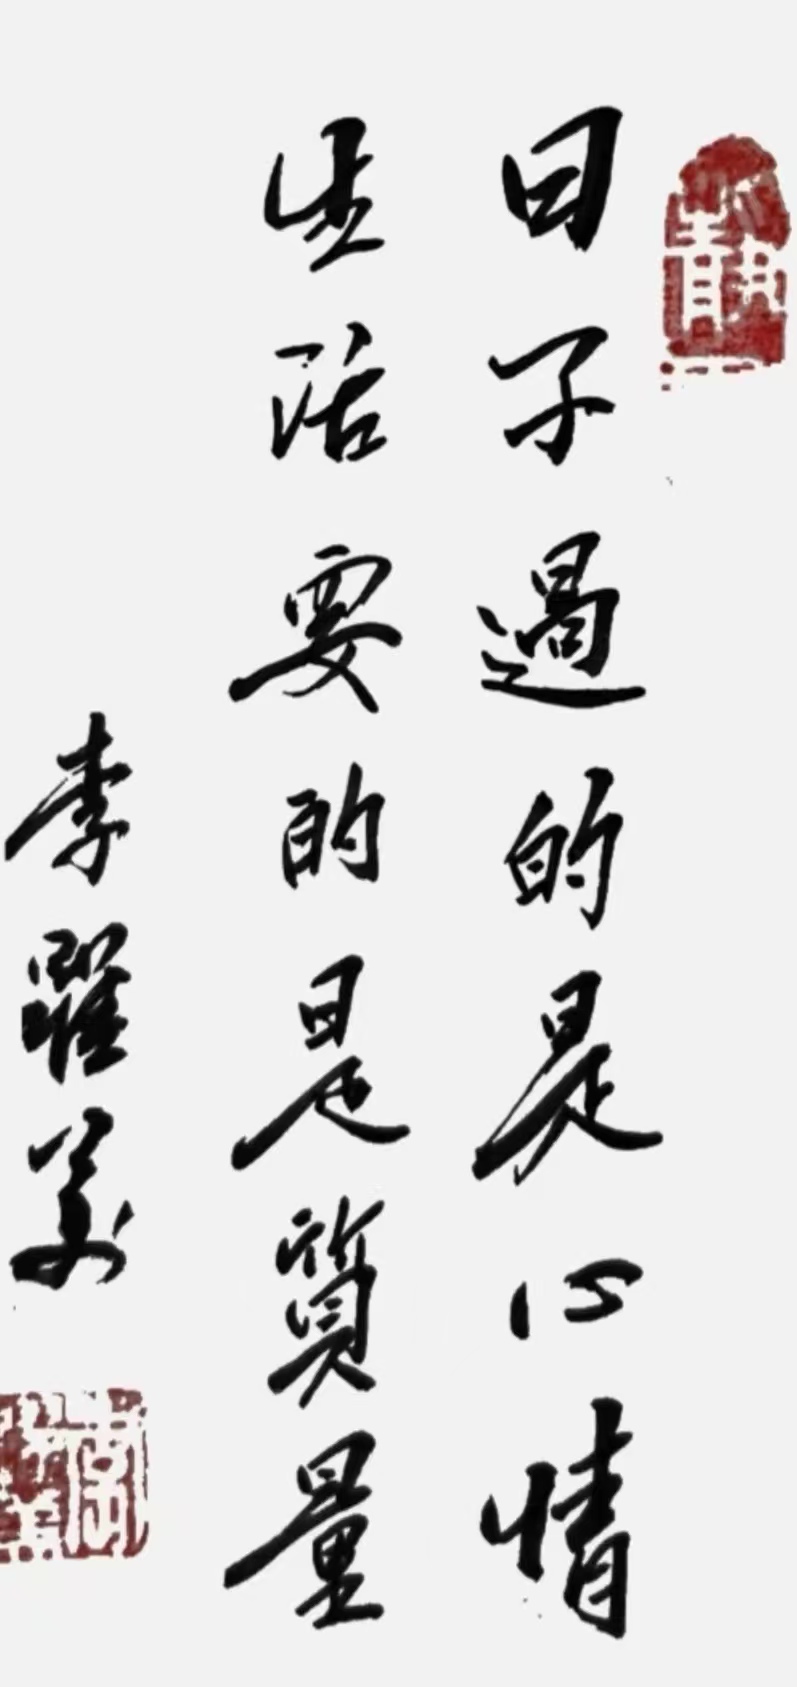 日子過的是心情
生活要的是質量
李躍美